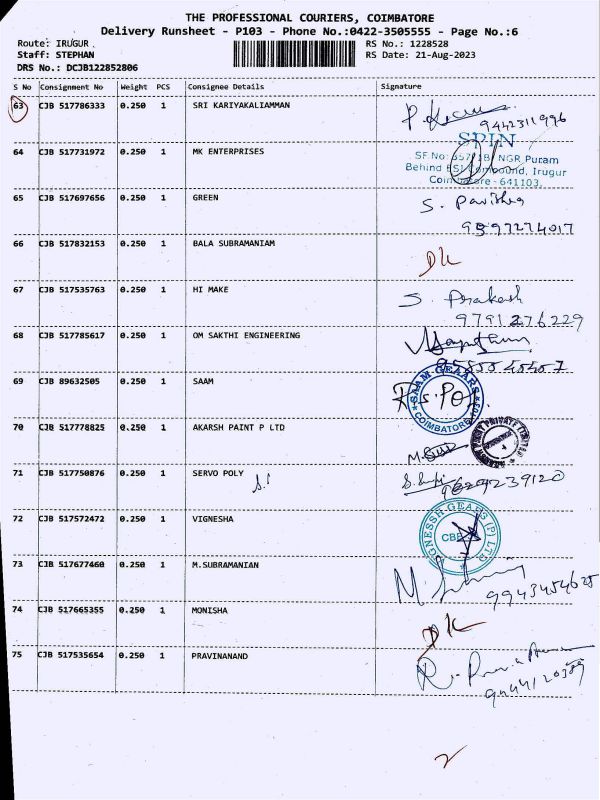 THE PROFESSIONAL COURIERS, COIMBATORE
Delivery Runsheet - P103 - Phone No.:0422-3505555 - Page No.:6
Route: IRUGUR RS No.: 1228528
Staff: STEPHAN RS Date: 21-Aug-2023
DRS No.: DCJB122852806
S No Consignment No Weight PCS Consignee Details Signature
63 CJB 517786333 0.250 1 SRI KARIYAKALIAMMAN
9442311996
SPIN
64 CJB 517731972 0.250 1 MK ENTERPRISES
NGR Puram
Behind ESI Compound, Irugur
Coimbatore - 641103.
65 CJB 517697656 0.250 1 GREEN S. Pavithra
9597274017
66 CJB 517832153 0.250 1 BALA SUBRAMANIAM DK
67 CJB 517535763 0.250 1 HI MAKE S. Prakash
9791276229
68 CJB 517785617 0.250 1 OM SAKTHI ENGINEERING
69 CJB 89632505 0.250 1 SAAM
SAAM GEAARS
COIMBATORE
70 CJB 517778825 0.250 1 AKARSH PAINT P LTD
PRIVATE LIMITED
71 CJB 517750876 0.250 1 SERVO POLY
72 CJB 517572472 0.250 1 VIGNESHA
GEARS (P) LTD
73 CJB 517677460 0.250 1 M.SUBRAMANIAN
9943454625
74 CJB 517665355 0.250 1 MONISHA DK
75 CJB 517535654 0.250 1 PRAVINANAND
2